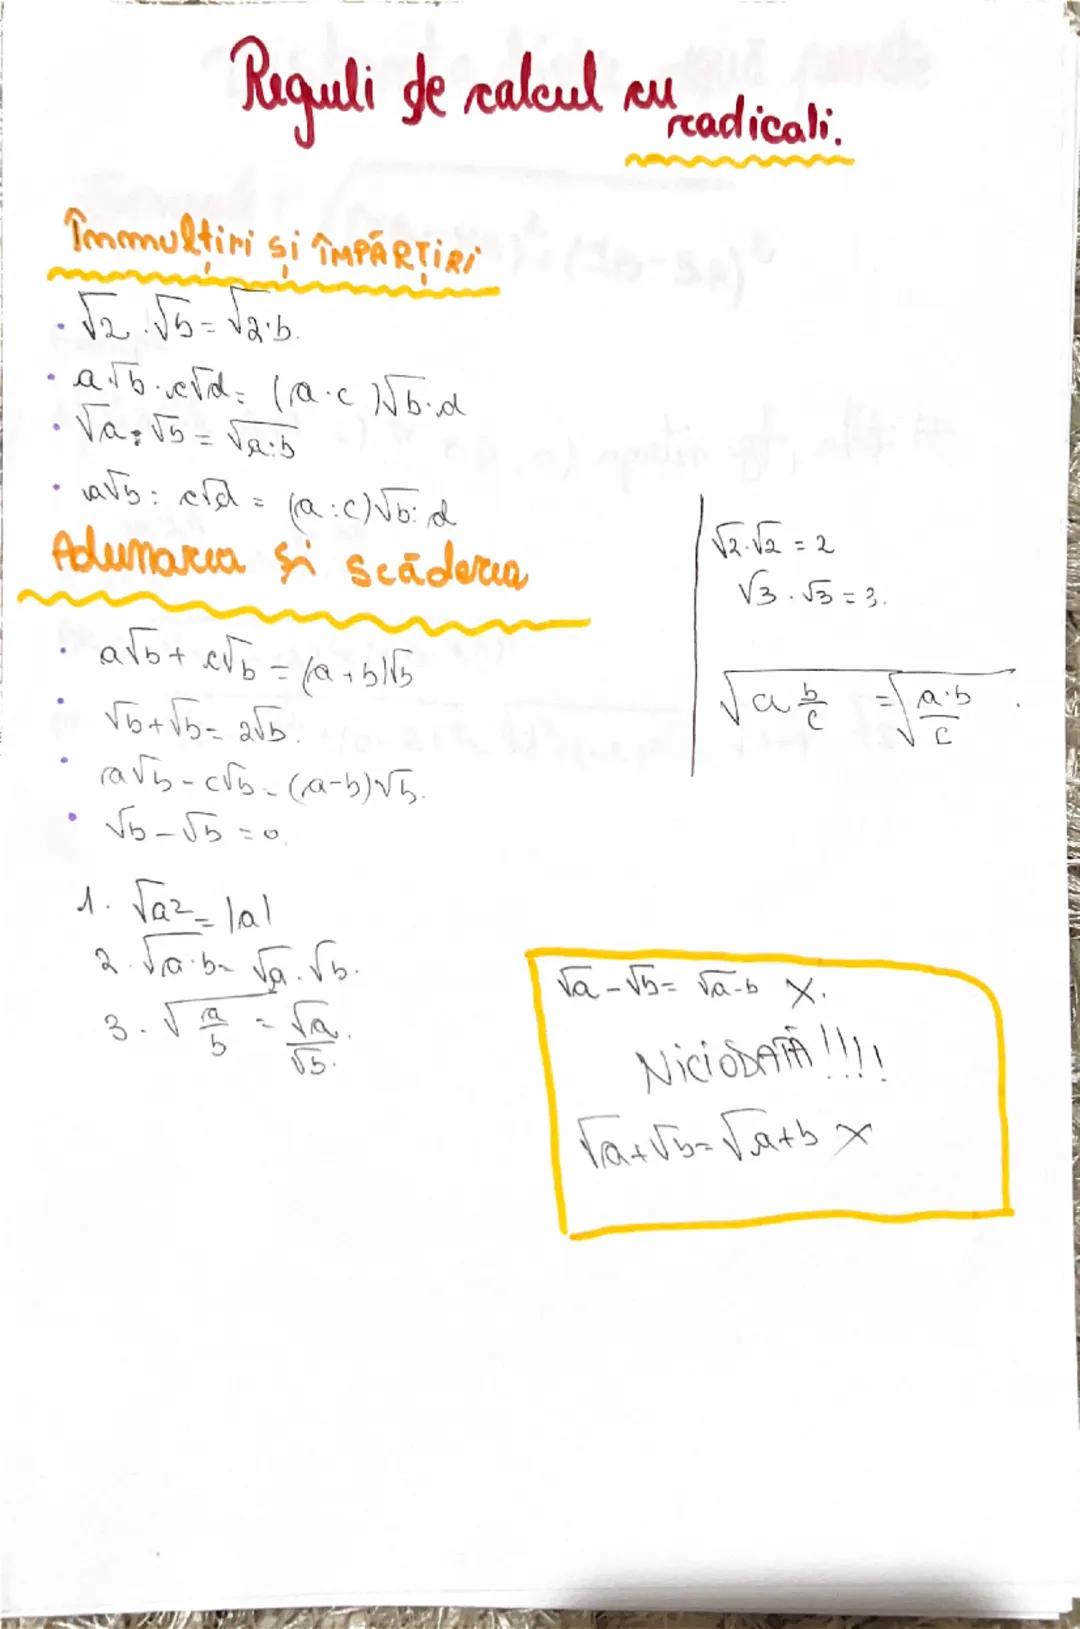 Reguli de calcul cu radicali.
Înmulțiri și ÎMPĂRȚIRI
• √2 · √b = √2·b.
• a√b · c√d = (a·c)√b·d
• √a : √b = √a:b
• a√b : c√d = (a:c)√b:d
Adunarea și scăderea
• a√b + c√b = (a+b)√b
• √b + √b = 2√b.
• a√b - c√b = (a-b)√b.
• √b - √b = 0.
1. √a² = |a|
2. √a·b = √a · √b.
3. √a/b = √a/√b.
√2·√2 = 2
√3·√3 = 3.
√a b/c = √a·b/c.
√a - √b = √a-b X.
NICIODATĂ!!!!
√a + √b = √a+b X